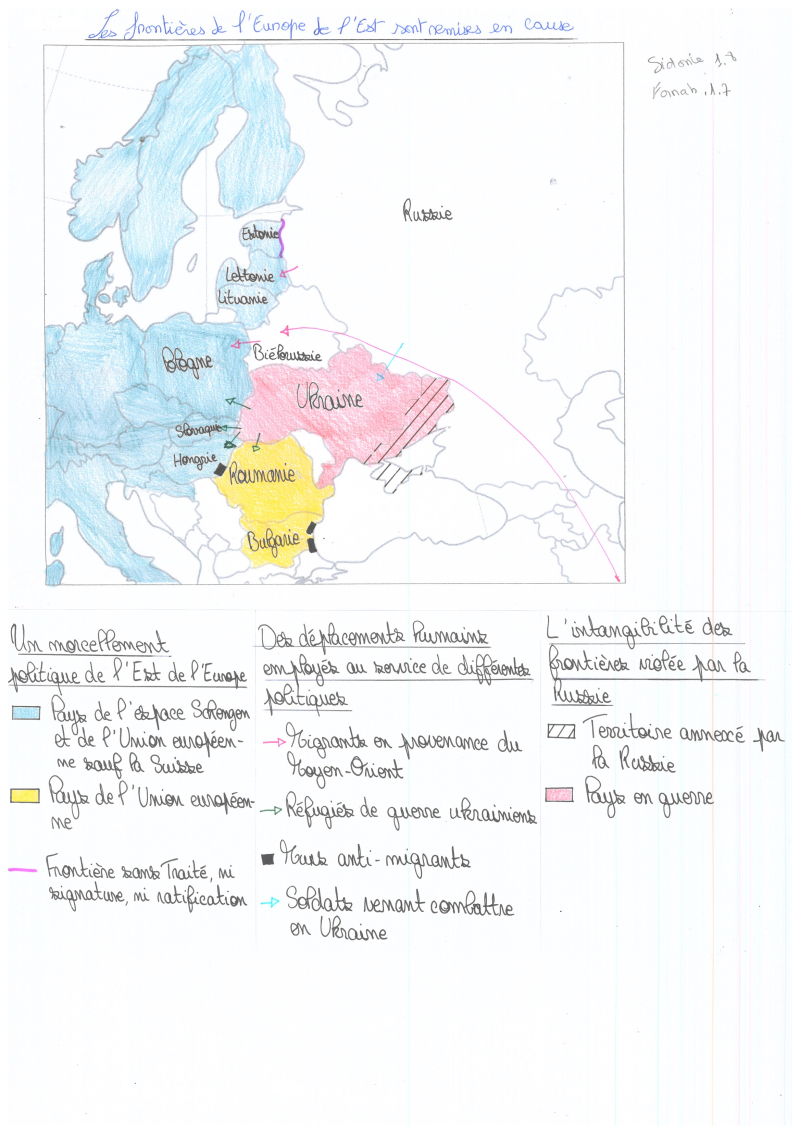 Les frontières de l'Europe de l'Est sont remises en cause
Sidonie 1.8
1.7
Russie
Estonie
Lettonie
Lituanie
Biélorussie
Pologne
Ukraine
Slovaquie
Hongrie
Roumanie
Bulgarie
Un morcellement
politique de l'Est de l'Europe
Pays de l'espace Schengen
et de l'Union européen-
ne sauf la Suisse
Pays de l'Union européen-
ne
Frontière sans Traité, ni
signature, ni ratification
Des déplacements humains
employés au service de différentes
politiques
Migrants en provenance du
Moyen-Orient
Réfugiés de guerre ukrainiens
Murs anti-migrants
Soldats venant combattre
en Ukraine
L'intangibilité des
frontières violée par la
Russie
Territoire annexé par
la Russie
Pays en guerre